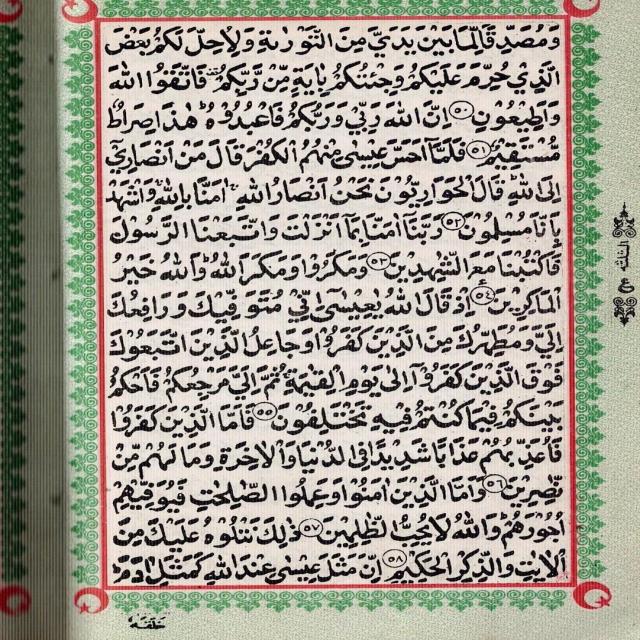 وَمُصَدِّقًا لِّمَا بَيْنَ يَدَيَّ مِنَ التَّوْرٰىةِ وَلِاُحِلَّ لَكُمْ بَعْضَ
الَّذِيْ حُرِّمَ عَلَيْكُمْ وَجِئْتُكُمْ بِاٰيَةٍ مِّنْ رَّبِّكُمْ فَاتَّقُوا اللّٰهَ
وَاَطِيْعُوْنِ ٥٠ اِنَّ اللّٰهَ رَبِّيْ وَرَبُّكُمْ فَاعْبُدُوْهُ هٰذَا صِرَاطٌ
مُّسْتَقِيْمٌ ٥١ فَلَمَّا اَحَسَّ عِيْسٰى مِنْهُمُ الْكُفْرَ قَالَ مَنْ اَنْصَارِيْ
اِلَى اللّٰهِ قَالَ الْحَوَارِيُّوْنَ نَحْنُ اَنْصَارُ اللّٰهِ اٰمَنَّا بِاللّٰهِ وَاشْهَدْ
بِاَنَّا مُسْلِمُوْنَ ٥٢ رَبَّنَا اٰمَنَّا بِمَا اَنْزَلْتَ وَاتَّبَعْنَا الرَّسُوْلَ
فَاكْتُبْنَا مَعَ الشّٰهِدِيْنَ ٥٣ وَمَكَرُوْا وَمَكَرَ اللّٰهُ وَاللّٰهُ خَيْرُ
الْمَاكِرِيْنَ ٥٤ اِذْ قَالَ اللّٰهُ يٰعِيْسٰى اِنِّيْ مُتَوَفِّيْكَ وَرَافِعُكَ
اِلَيَّ وَمُطَهِّرُكَ مِنَ الَّذِيْنَ كَفَرُوْا وَجَاعِلُ الَّذِيْنَ اتَّبَعُوْكَ
فَوْقَ الَّذِيْنَ كَفَرُوْا اِلٰى يَوْمِ الْقِيٰمَةِ ثُمَّ اِلَيَّ مَرْجِعُكُمْ فَاَحْكُمُ
بَيْنَكُمْ فِيْمَا كُنْتُمْ فِيْهِ تَخْتَلِفُوْنَ ٥٥ فَاَمَّا الَّذِيْنَ كَفَرُوْا
فَاُعَذِّبُهُمْ عَذَابًا شَدِيْدًا فِى الدُّنْيَا وَالْاٰخِرَةِ وَمَا لَهُمْ مِّنْ
نّٰصِرِيْنَ ٥٦ وَاَمَّا الَّذِيْنَ اٰمَنُوْا وَعَمِلُوا الصّٰلِحٰتِ فَيُوَفِّيْهِمْ
اُجُوْرَهُمْ وَاللّٰهُ لَا يُحِبُّ الظّٰلِمِيْنَ ٥٧ ذٰلِكَ نَتْلُوْهُ عَلَيْكَ مِنَ
الْاٰيٰتِ وَالذِّكْرِ الْحَكِيْمِ ٥٨ اِنَّ مَثَلَ عِيْسٰى عِنْدَ اللّٰهِ كَمَثَلِ اٰدَمَ
خَلَقَهٗ
ع